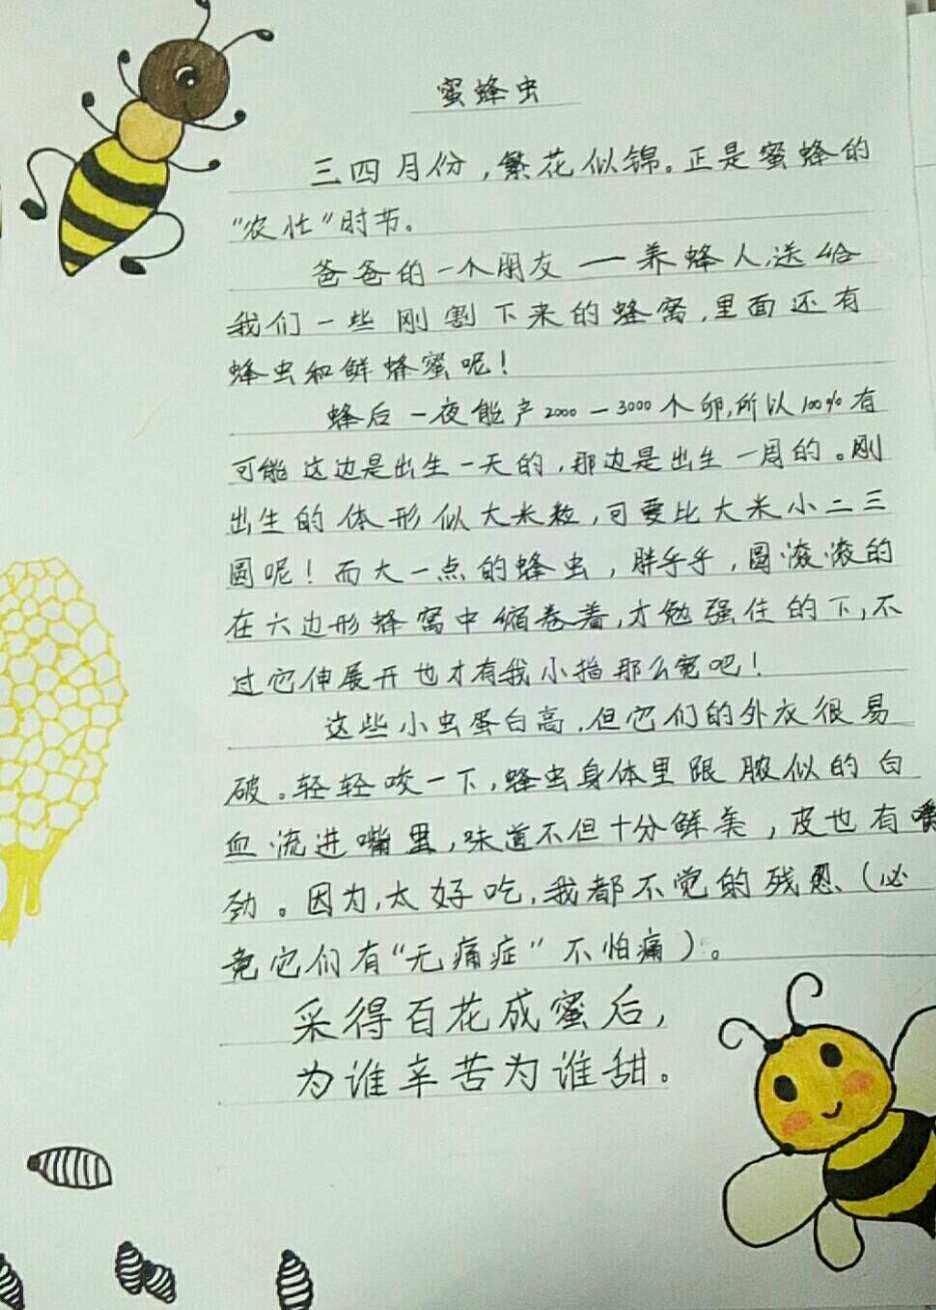 蜜蜂虫
三四月份，繁花似锦。正是蜜蜂的
“农忙”时节。
爸爸的一个朋友一养蜂人，送给
我们一些刚割下来的蜂窝，里面还有
蜂虫和鲜蜂蜜呢！
蜂后一夜能产2000－3000个卵，所以100%有
可能这边是出生一天的，那边是出生一周的。刚
出生的体形似大米粒，可要比大米小二三
圆呢！而大一点的蜂虫，胖乎乎，圆滚滚的
在六边形蜂窝中缩卷着，才勉强住的下，不
过它伸展开也才有我小指那么宽吧！
这些小虫蛋白高，但它们的外衣很易
破。轻轻咬一下，蜂虫身体里跟脓似的白
血流进嘴里，味道不但十分鲜美，皮也有嚼
劲。因为，太好吃，我都不觉的残忍（必
竟它们有“无痛症”不怕痛）。
采得百花成蜜后，
为谁辛苦为谁甜。